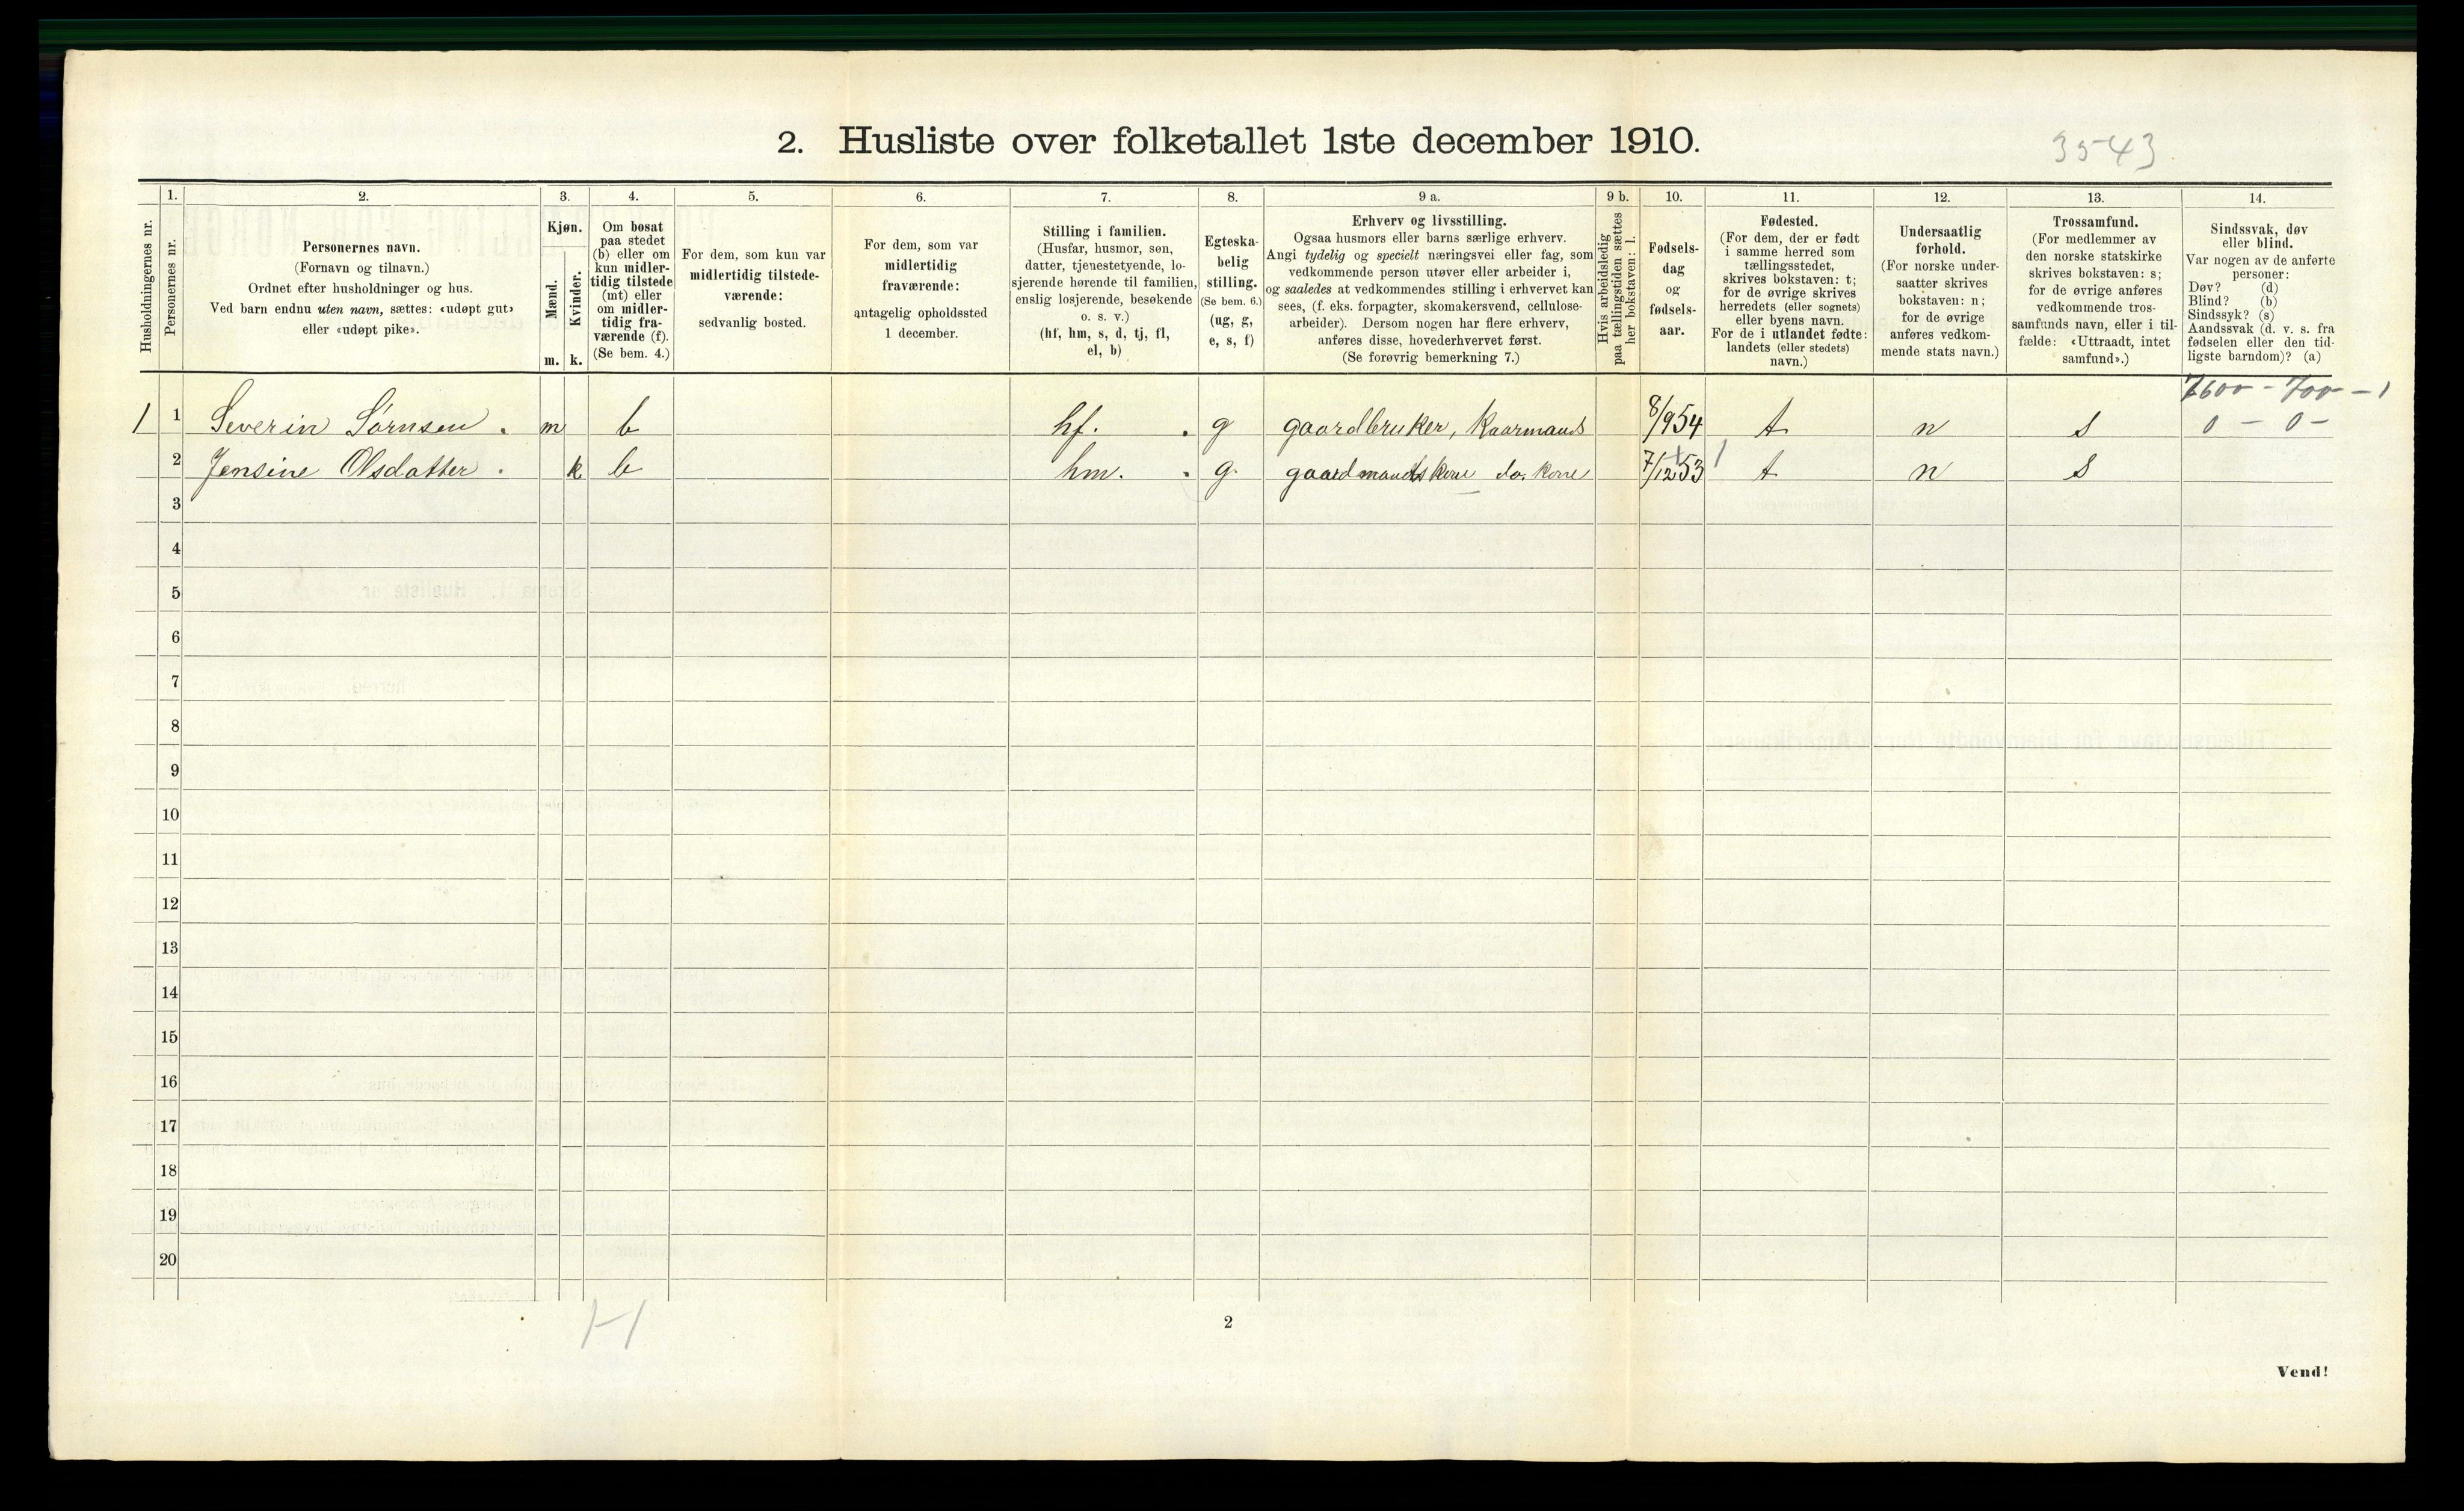 2. Husliste over folketallet 1ste december 1910.
3543
Husholdningernes nr.
1.
Personernes nr.
2.
Personernes navn.
(Fornavn og tilnavn.)
Ordnet efter husholdninger og hus.
Ved barn endnu uten navn, sættes: «udøpt gut»
eller «udøpt pike».
3.
Kjøn.
Mænd.
m.
Kvinder.
k.
4.
Om bosat
paa stedet
(b) eller om
kun midler-
tidig tilstede
(mt) eller
om midler-
tidig fra-
værende (f).
(Se bem. 4.)
5.
For dem, som kun var
midlertidig tilstede-
værende:
sedvanlig bosted.
6.
For dem, som var
midlertidig
fraværende:
antagelig opholdssted
1 december.
7.
Stilling i familien.
(Husfar, husmor, søn,
datter, tjenestetyende, lo-
sjerende hørende til familien,
enslig losjerende, besøkende
o. s. v.)
(hf, hm, s, d, tj, fl,
el, b)
8.
Egteska-
belig
stilling.
(Se bem. 6.)
(ug, g,
e, s, f)
9 a.
Erhverv og livsstilling.
Ogsaa husmors eller barns særlige erhverv.
Angi tydelig og specielt næringsvei eller fag, som
vedkommende person utøver eller arbeider i,
og saaledes at vedkommendes stilling i erhvervet kan
sees, (f. eks. forpagter, skomakersvend, cellulose-
arbeider). Dersom nogen har flere erhverv,
anføres disse, hovederhvervet først.
(Se forøvrig bemerkning 7.)
9 b.
Hvis arbeidsledig
paa tællingstiden sættes
her bokstaven: l.
10.
Fødsels-
dag
og
fødsels-
aar.
11.
Fødested.
(For dem, der er født
i samme herred som
tællingsstedet,
skrives bokstaven: t;
for de øvrige skrives
herredets (eller sognets)
eller byens navn.
For de i utlandet fødte:
landets (eller stedets)
navn.)
12.
Undersaatlig
forhold.
(For norske under-
saatter skrives
bokstaven: n;
for de øvrige
anføres vedkom-
mende stats navn.)
13.
Trossamfund.
(For medlemmer av
den norske statskirke
skrives bokstaven: s;
for de øvrige anføres
vedkommende tros-
samfunds navn, eller i til-
fælde: «Uttraadt, intet
samfund».)
14.
Sindssvak, døv
eller blind.
Var nogen av de anførte
personer:
Døv? (d)
Blind? (b)
Sindssyk? (s)
Aandssvak (d. v. s. fra
fødselen eller den tid-
ligste barndom)? (a)
7600 - 700 - 1
1 1 Severin Sörnsen. m b hf. g gaardbruker, Kaarmands 8/9 54 t n s 0 - 0 -
2 Jensine Olsdatter. k b hm. g. gaardmandskone do. kone 7/12 53 t n s
3
4
5
6
7
8
9
10
11
12
13
14
15
16
17
18
19
20
2
Vend!